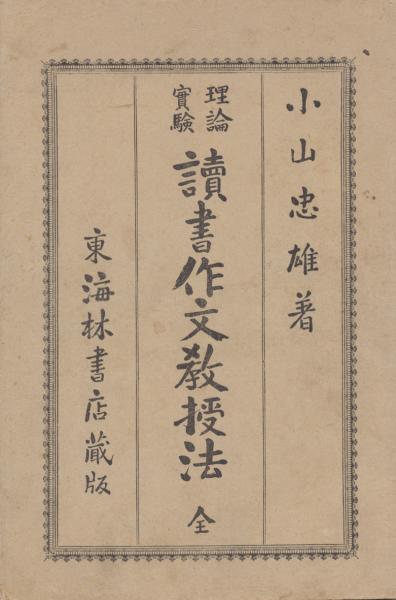 小山忠雄著
理論
實驗
讀書作文教授法 全
東海林書店蔵版